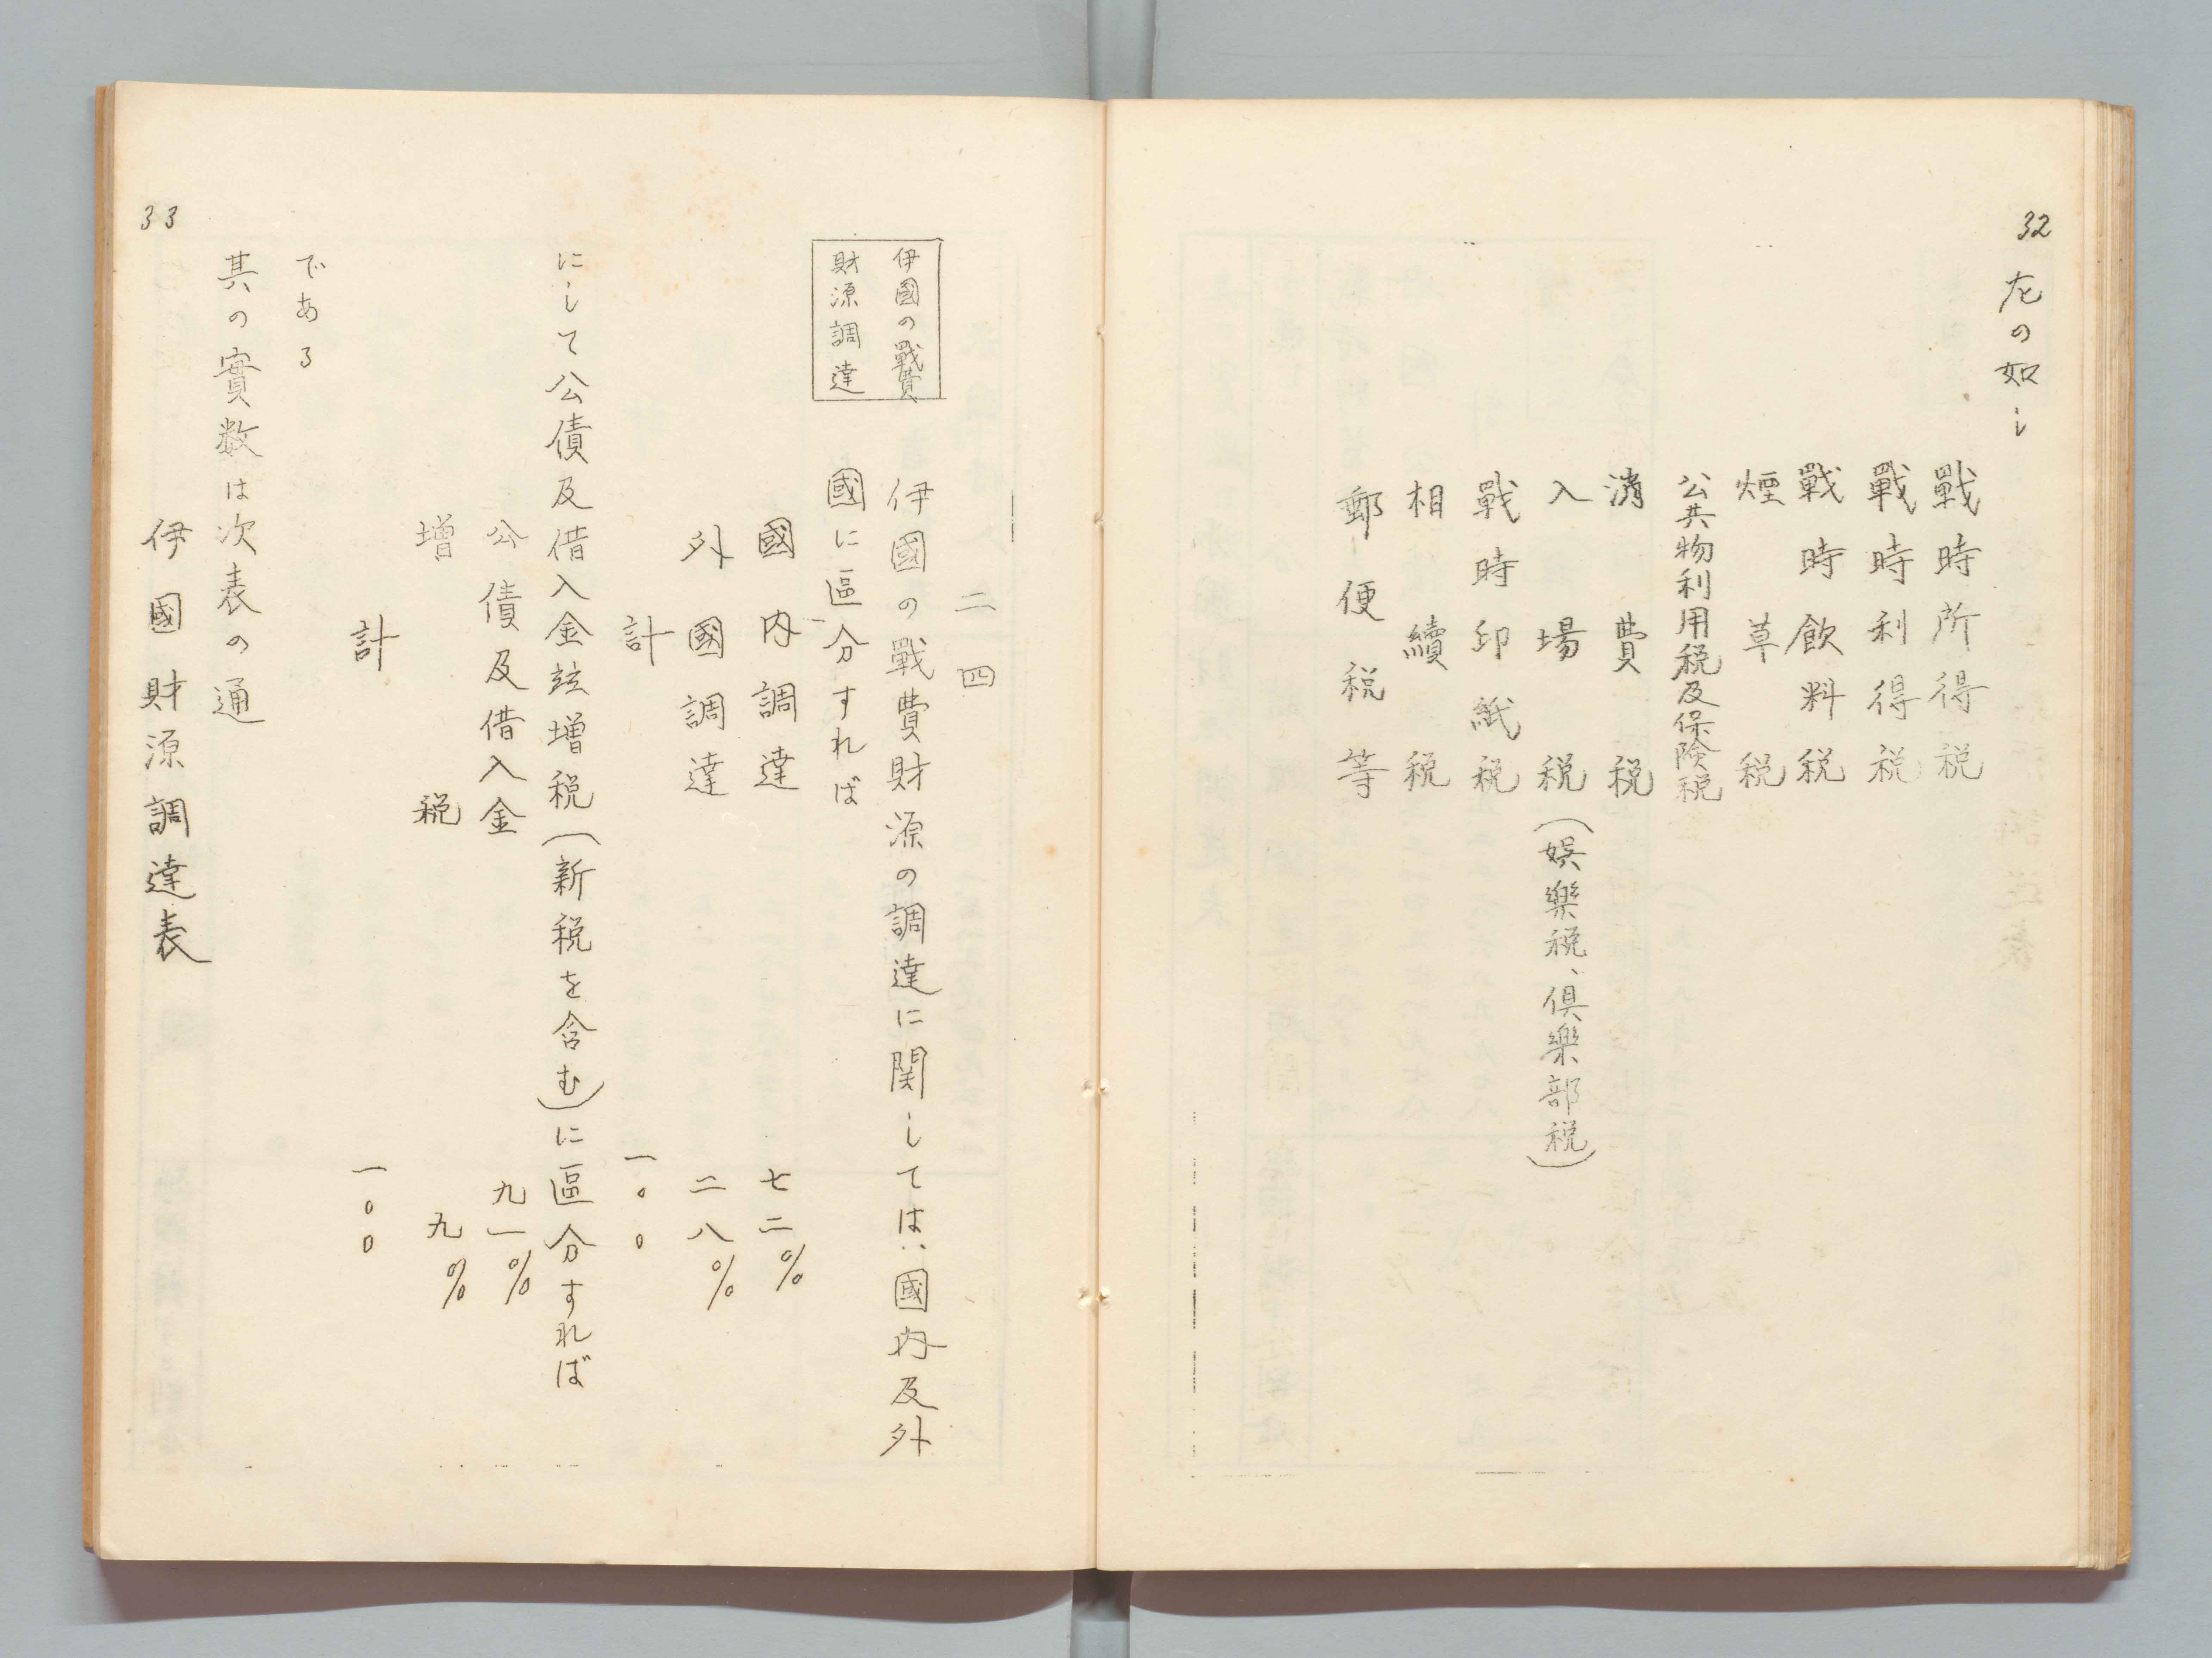 32
左の如し
戰時所得税
戰時利得税
戰時飲料税
煙草税
公共物利用税及保険税
消費税
入場税(娯樂税、倶樂部税)
戰時印紙税
相續税
郵便税等
二四
伊國の戰費
財源調達
伊國の戰費財源の調達に関しては、國内及外
國に區分すれば
國内調達 七二%
外國調達 二八%
計 一〇〇
にして公債及借入金竝増税(新税を含む)に區分すれば
公債及借入金 九一%
増税 九%
計 一〇〇
である
其の實数は次表の通
伊國財源調達表
33